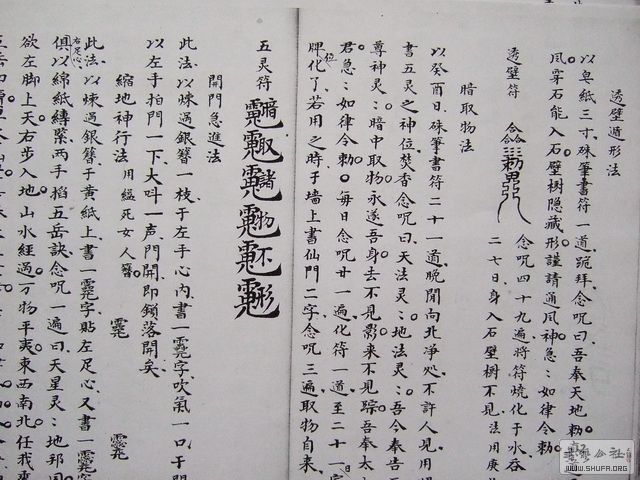 透壁遁形法
以皂紙三寸硃筆書符一道跪拜念呪曰吾奉天地勅
風穿石能入石壁樹隐藏形謹請通风神急如律令勅
透壁符
念呪四十九遍将符燒化于水吞
二七日身入石壁樹不見法用庚
暗取物法
以癸酉日硃筆書符二十一道晚閒向北净処不許人見用
書五灵之神位焚香念呪曰天法灵地法灵吾今奉告
尊神灵暗中取物永遂吾身去不見影来不見踪吾奉太
君急如律令勅每日念呪廿一遍化符一道至二十一日
牌位化了若用之時于墙上書仙門二字念呪三遍取物自来
五灵符
暗取諸物不形
開門急進法
此法以煉過銀簪一枝于左手心内書一字吹氣一口于門
以左手拍門一下大叫一声門開即鎖落開矣
縮地神行法
用縊死女人簪
此法以煉過銀簪于黄紙上書一字貼左足心又書一字
右足心
俱以綿紙縳緊两手掐五岳訣念呪一遍曰天星灵地
欲左脚上天右步入地山水經過万物平夷東西南北任我
WWW.SHUFA.ORG